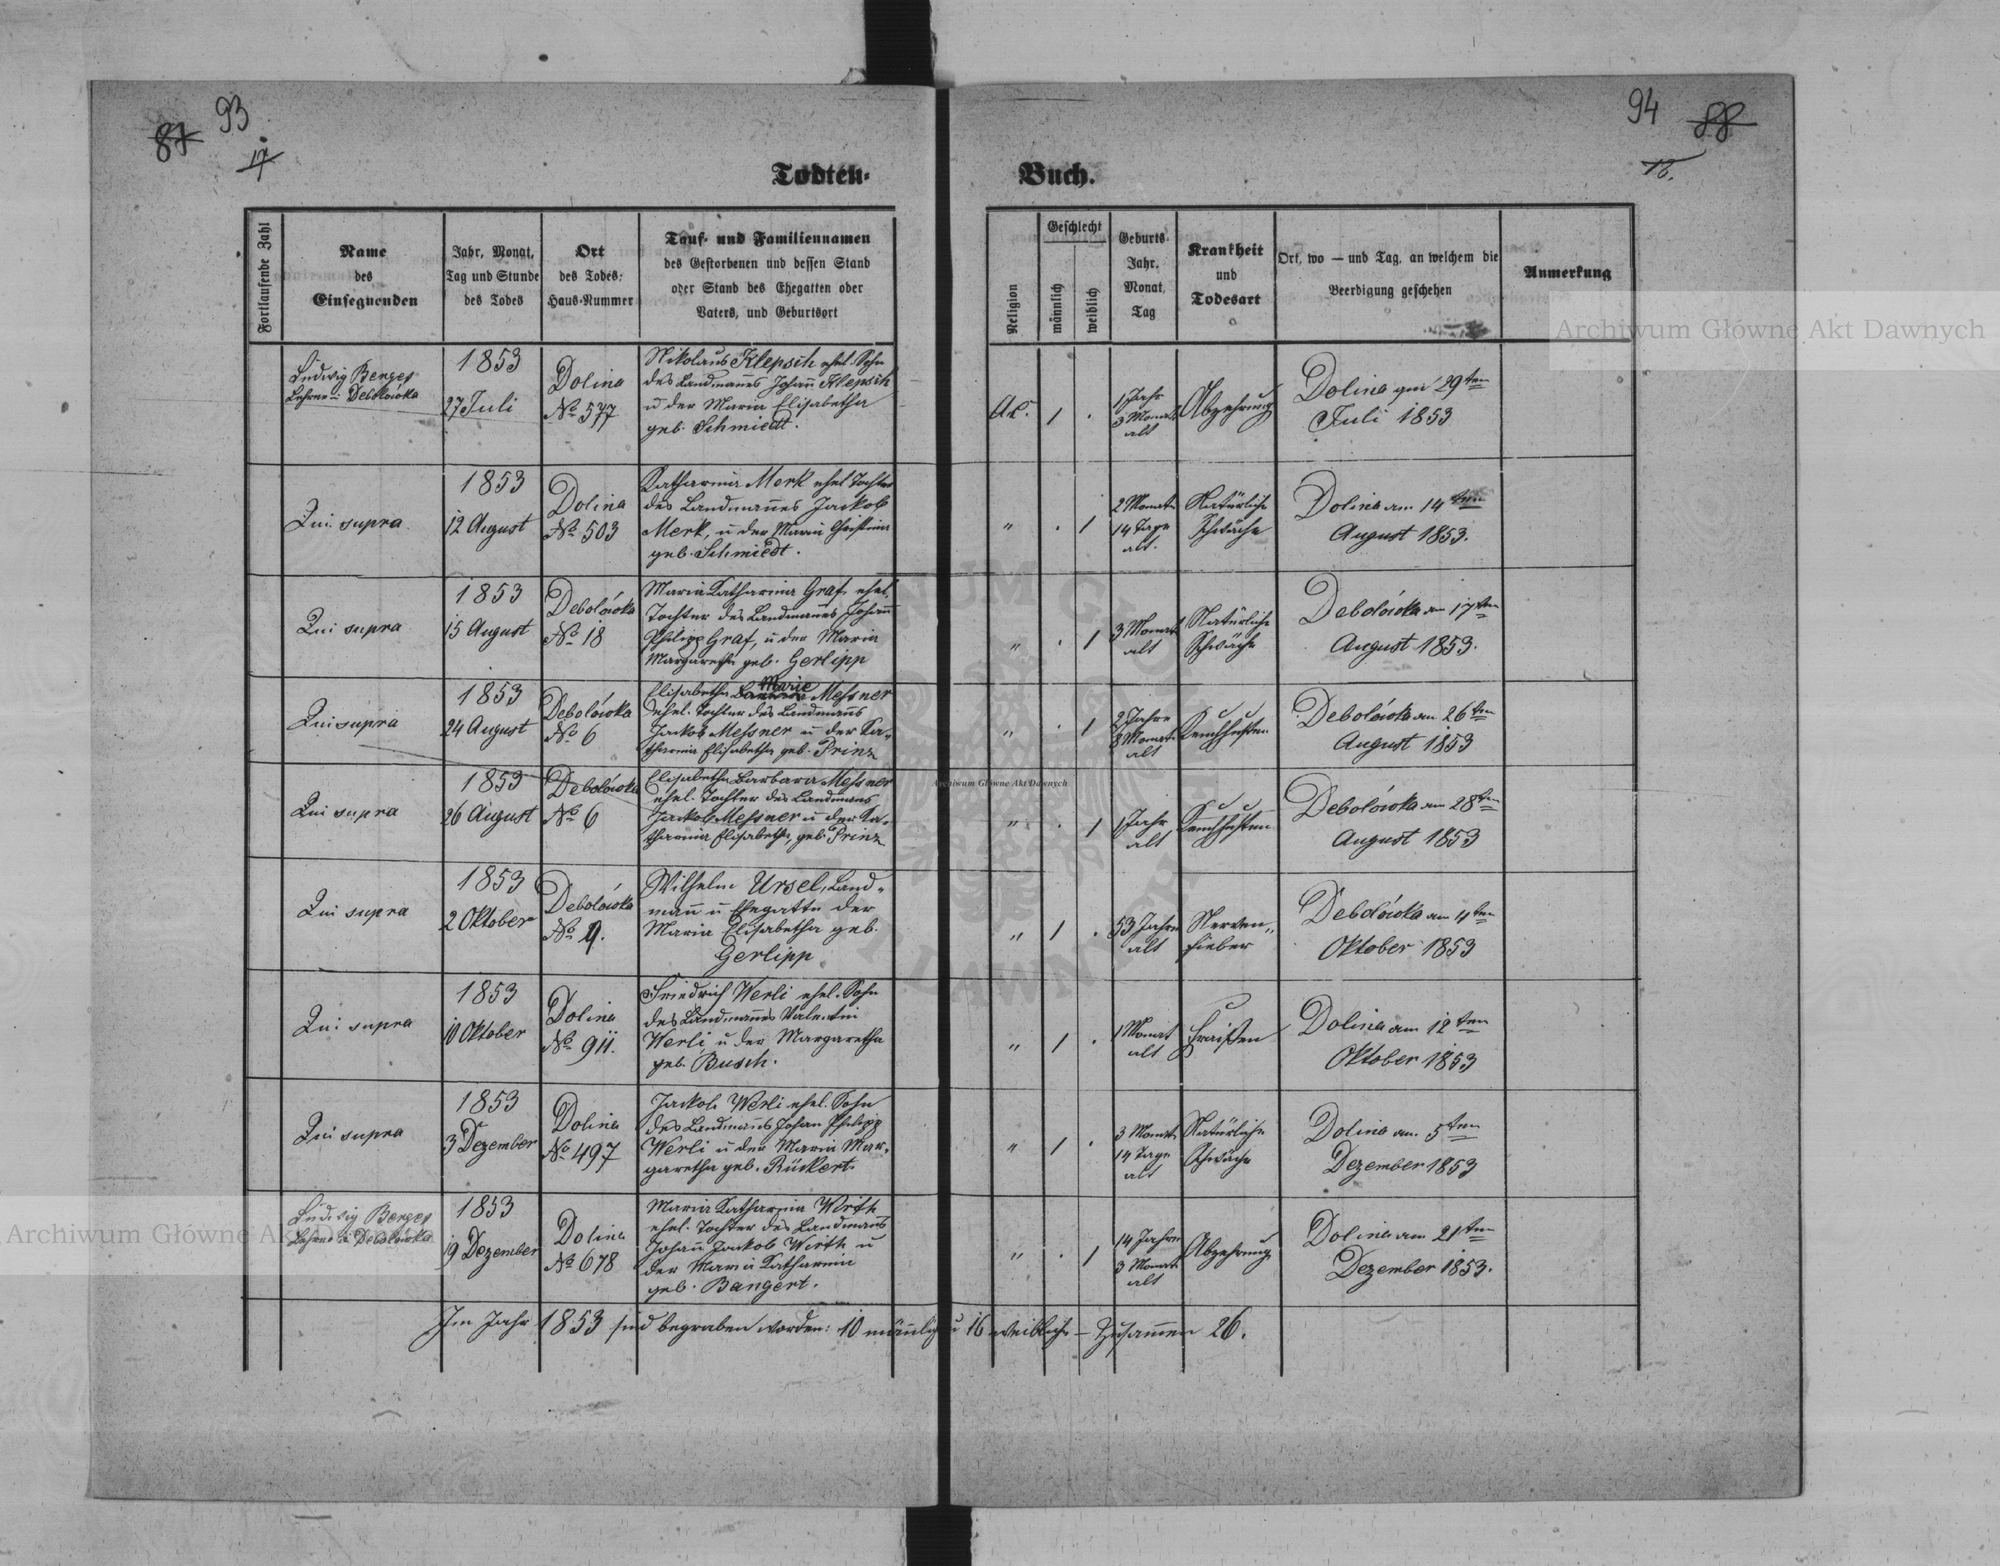 87 93
17
94 88
18.
Todten-
Buch.
Fortlaufende Zahl
Name
des
Einsegnenden
Jahr, Monat,
Tag und Stunde
des Todes
Ort
des Todes:
Haus-Nummer
Tauf- und Familiennamen
des Gestorbenen und dessen Stand
oder Stand des Ehegatten oder
Vaters, und Geburtsort
Religion
Geschlecht
männlich
weiblich
Geburts-
Jahr,
Monat,
Tag
Krankheit
und
Todesart
Ort, wo — und Tag, an welchem die
Beerdigung geschehen
Anmerkung
Ludwig Berges
Lehrer in Debolówka
1853
27 Juli
Dolina
No 577
Nikolaus Klepsch ehel. Sohn
des Landmannes Johann Klepsch
u der Maria Elisabetha
geb. Schmiedt.
AC. 1 .
1 Jahr
3 Monat
alt
Abzehrung
Dolina am 29ten
Juli 1853
Qui supra
1853
12 August
Dolina
No 503
Katharina Merk ehel Tochter
des Landmannes Jackob
Merk, u der Maria Christina
geb. Schmiedt.
" . 1
2 Monat
14 Tage
alt.
Natürliche
Schwäche
Dolina am 14ten
August 1853.
Qui supra
1853
15 August
Debolówka
No 18
Maria Katharina Graf ehel.
Tochter des Landmannes Johann
Philipp Graf, u der Maria
Margaretha geb. Gerlipp
" . 1
3 Monat
alt
Natürliche
Schwäche
Debolówka am 17ten
August 1853.
Qui supra
1853
24 August
Debolówka
No 6
Marie
Elisabetha Messner
ehel. Tochter des Landmanns
Jackob Messner u der Ka-
tharina Elisabetha geb. Prinz
" . 1
2 Jahre
8 Monat
alt
Keuchhusten
Debolówka am 26ten
August 1853
Qui supra
1853
26 August
Debolówka
No 6
Elisabetha Barbara Messner
ehel. Tochter des Landmans
Jackob Messner u der Ka-
tharina Elisabetha, geb. Prinz
" . 1
1 Jahr
alt
Keuchhusten
Debolówka am 28ten
August 1853
Qui supra
1853
2 Oktober
Debolówka
No 9.
Wilhelm Ursel, Land-
mann u Ehegatte der
Maria Elisabetha geb.
Gerlipp
" 1 .
53 Jahre
alt
Nerven-
fieber
Debolówka am 4ten
Oktober 1853
Qui supra
1853
10 Oktober
Dolina
No 911.
Friedrich Werli ehel. Sohn
des Landmannes Valentin
Werli u der Margaretha
geb. Busch.
" 1 .
1 Monat
alt
Fraißen
Dolina am 12ten
Oktober 1853
Qui supra
1853
3 Dezember
Dolina
No 497
Jackob Werli ehel. Sohn
des Landmans Johan Philipp
Werli u der Maria Mar-
garetha geb. Rückert.
" 1 .
3 Monat
14 Tage
alt
Natürliche
Schwäche
Dolina am 5ten
Dezember 1853
Ludwig Berges
Lehrer in Debolówka
1853
19 Dezember
Dolina
No 678
Maria Katharina Wirth
ehel. Tochter des Landmans
Johann Jackob Wirth u
der Maria Katharina
geb. Bangert.
" . 1
14 Jahre
3 Monat
alt
Abzehrung
Dolina am 21ten
Dezember 1853.
Im Jahr 1853 sind begraben worden: 10 männlich u 16 weiblich — Zusammen 26.
Archiwum Główne Akt Dawnych
Archiwum Główne Akt Dawnych
Archiwum Główne Akt Dawnych